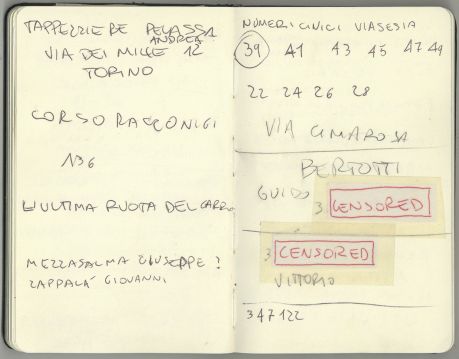 TAPPEZZIERE PELASSA
ANDREA
VIA DEI MILLE 12
TORINO
CORSO RACCONIGI
136
L'ULTIMA RUOTA DEL CARRO
MEZZASALMA GIUSEPPE ?
ZAPPALÀ GIOVANNI
NUMERI CIVICI VIA SESIA
39 41 43 45 47 49
22 24 26 28
VIA CIMAROSA
BERTOTTI
GUIDO
3 CENSORED
3 CENSORED
VITTORIO
347122